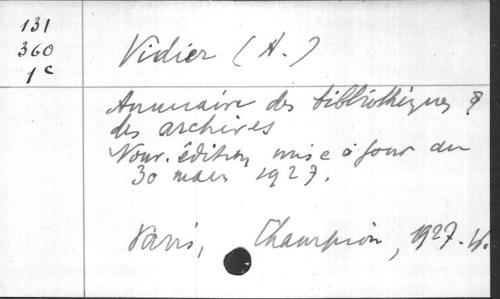 131
360
1 c
Vidier (A.)
Annuaire des bibliothèques &
des archives
Nouv. édition, mise à jour au
30 mars 1927.
Paris, Champion, 1927.